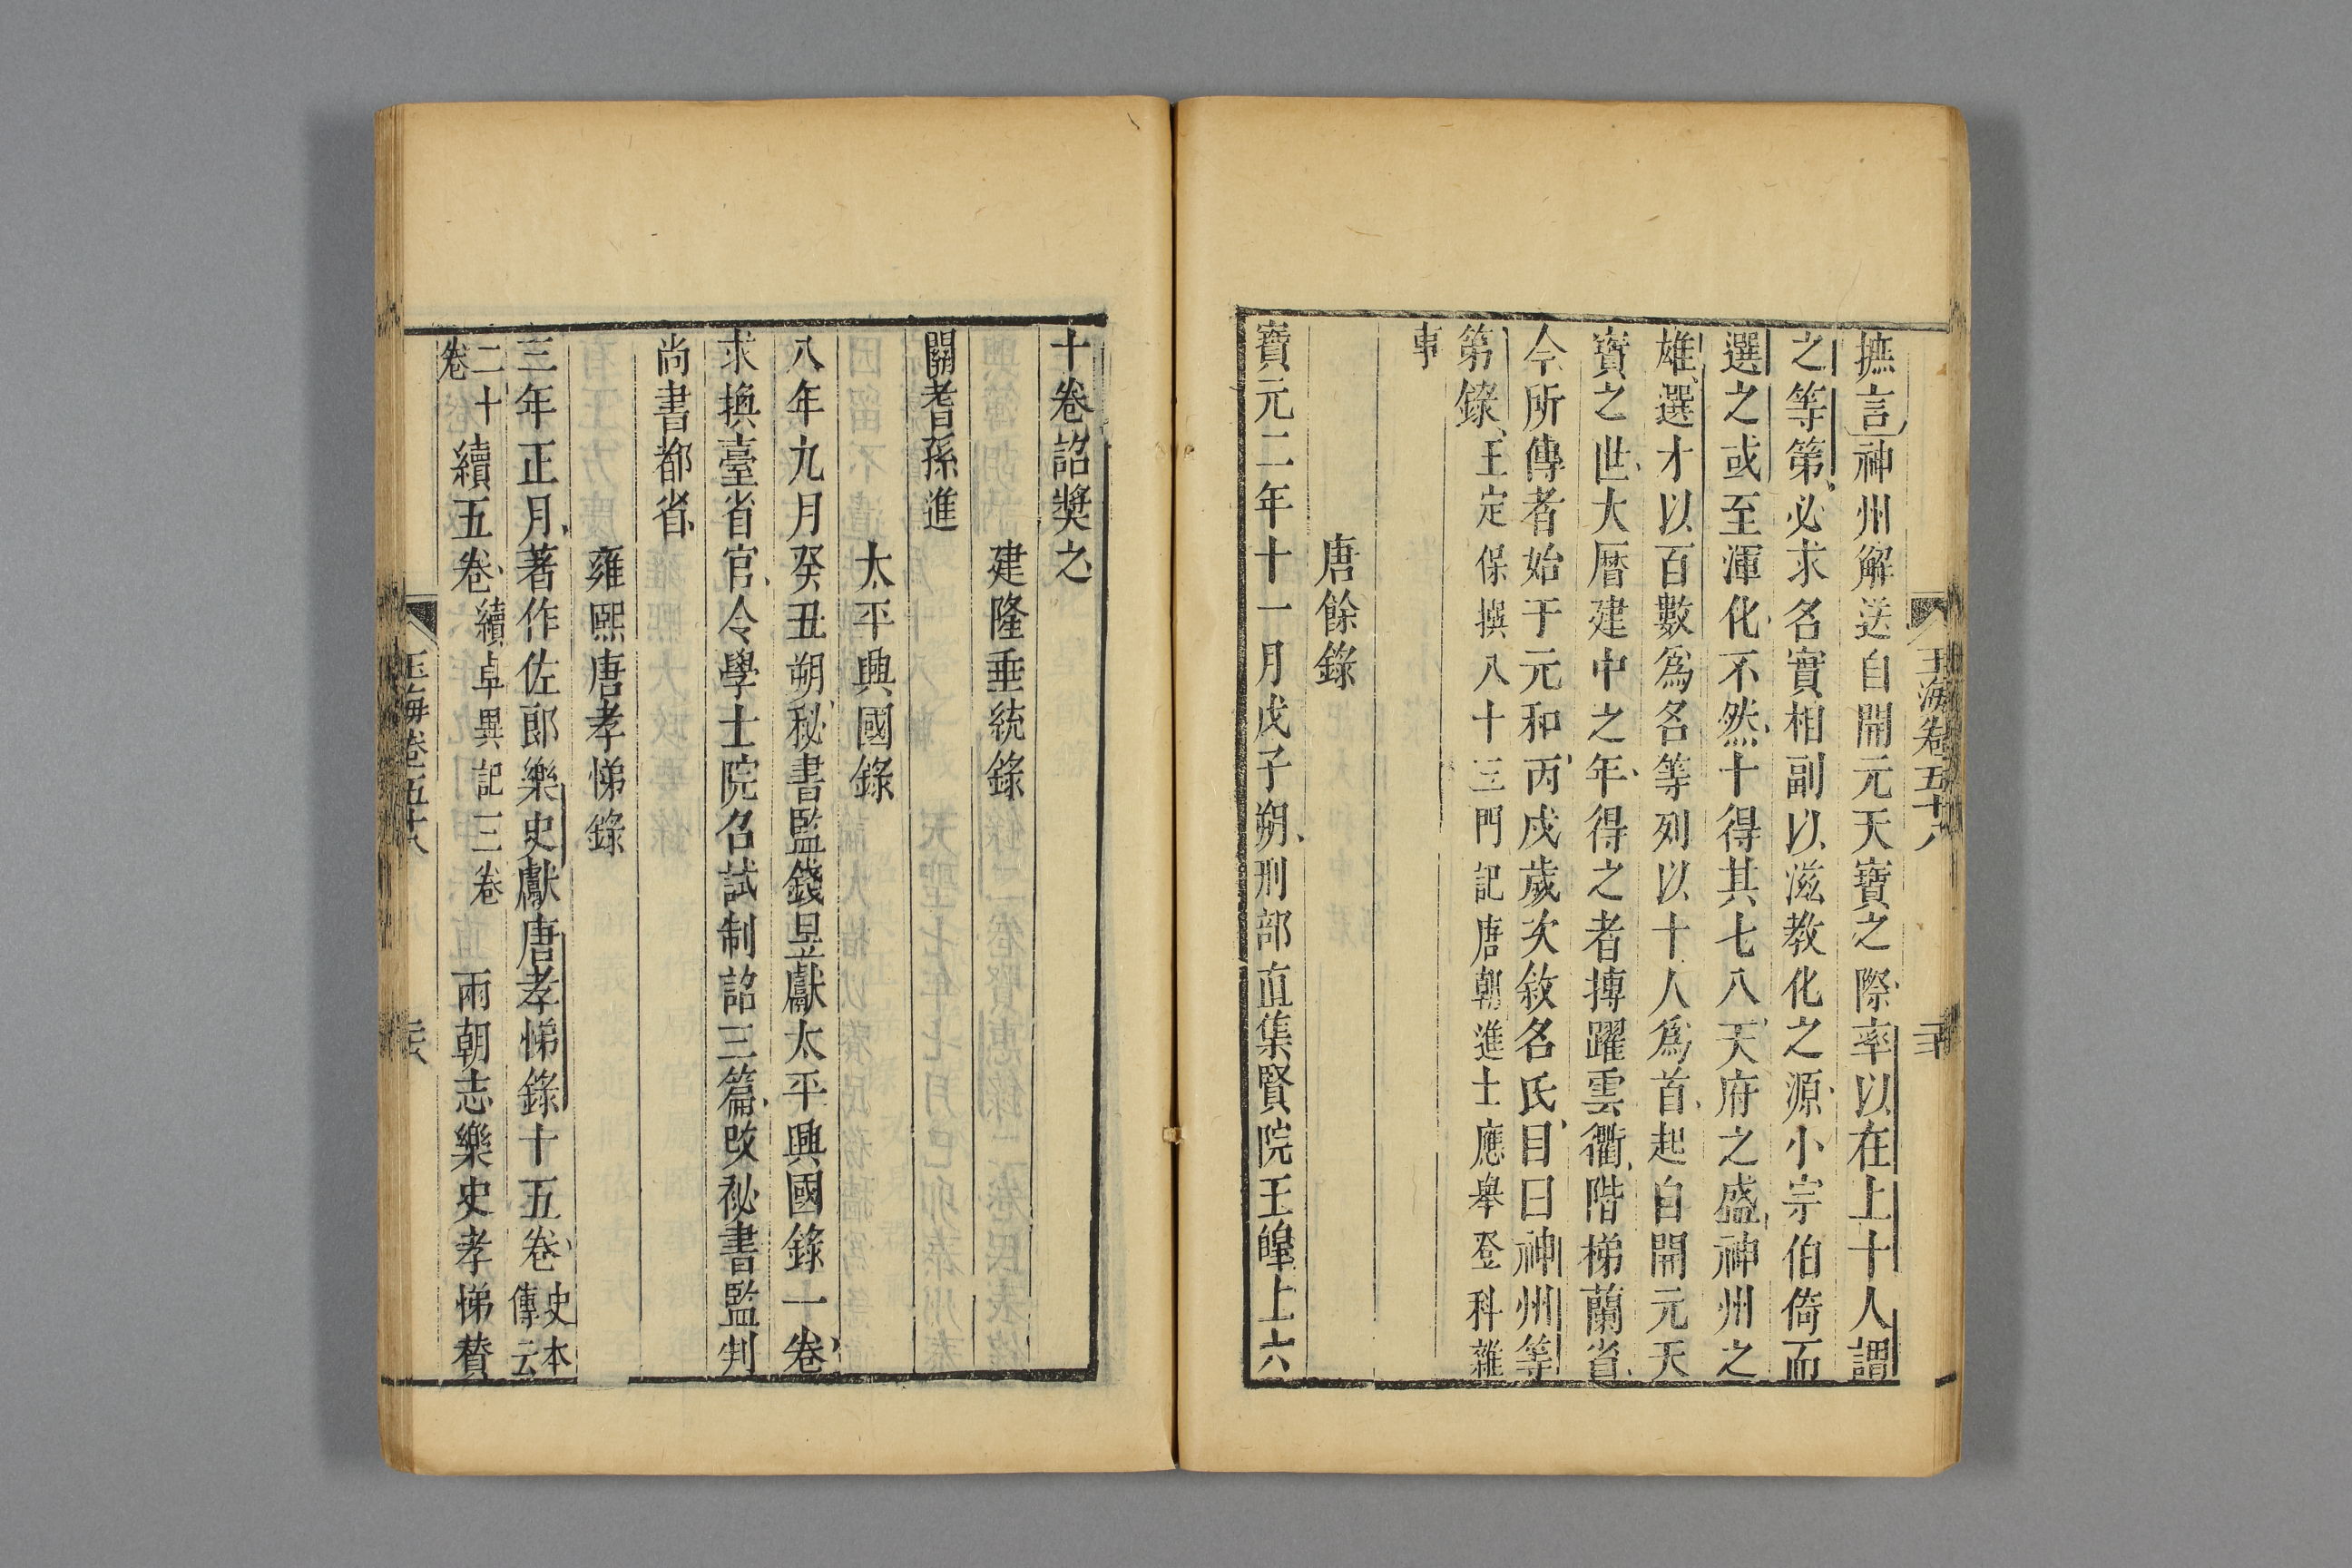 摭言神州解送自開元天寶之際率以在上十人謂
之等第必求名實相副以滋教化之源小宗伯倚而
選之或至渾化不然十得其七八天府之盛神州之
雄選才以百數為名等列以十人為首起自開元天
寶之世大曆建中之年得之者摶躍雲衢階梯蘭省
今所傳者始于元和丙戌歲次敘名氏目曰神州等
第錄王定保撰八十三門記唐朝進士應舉登科雜
事
唐餘錄
寶元二年十一月戊子朔刑部直集賢院王皥上六
玉海卷五十八
十卷詔獎之
建隆垂統錄
關耆孫進
太平興國錄
八年九月癸丑朔秘書監錢昱獻太平興國錄一卷
求換臺省官令學士院召試制詔三篇改祕書監判
尚書都省
雍熙唐孝悌錄
三年正月著作佐郎樂史獻唐孝悌錄十五卷史本傳云
二十卷續五卷續卓異記三卷兩朝志樂史孝悌贊
玉海卷五十八